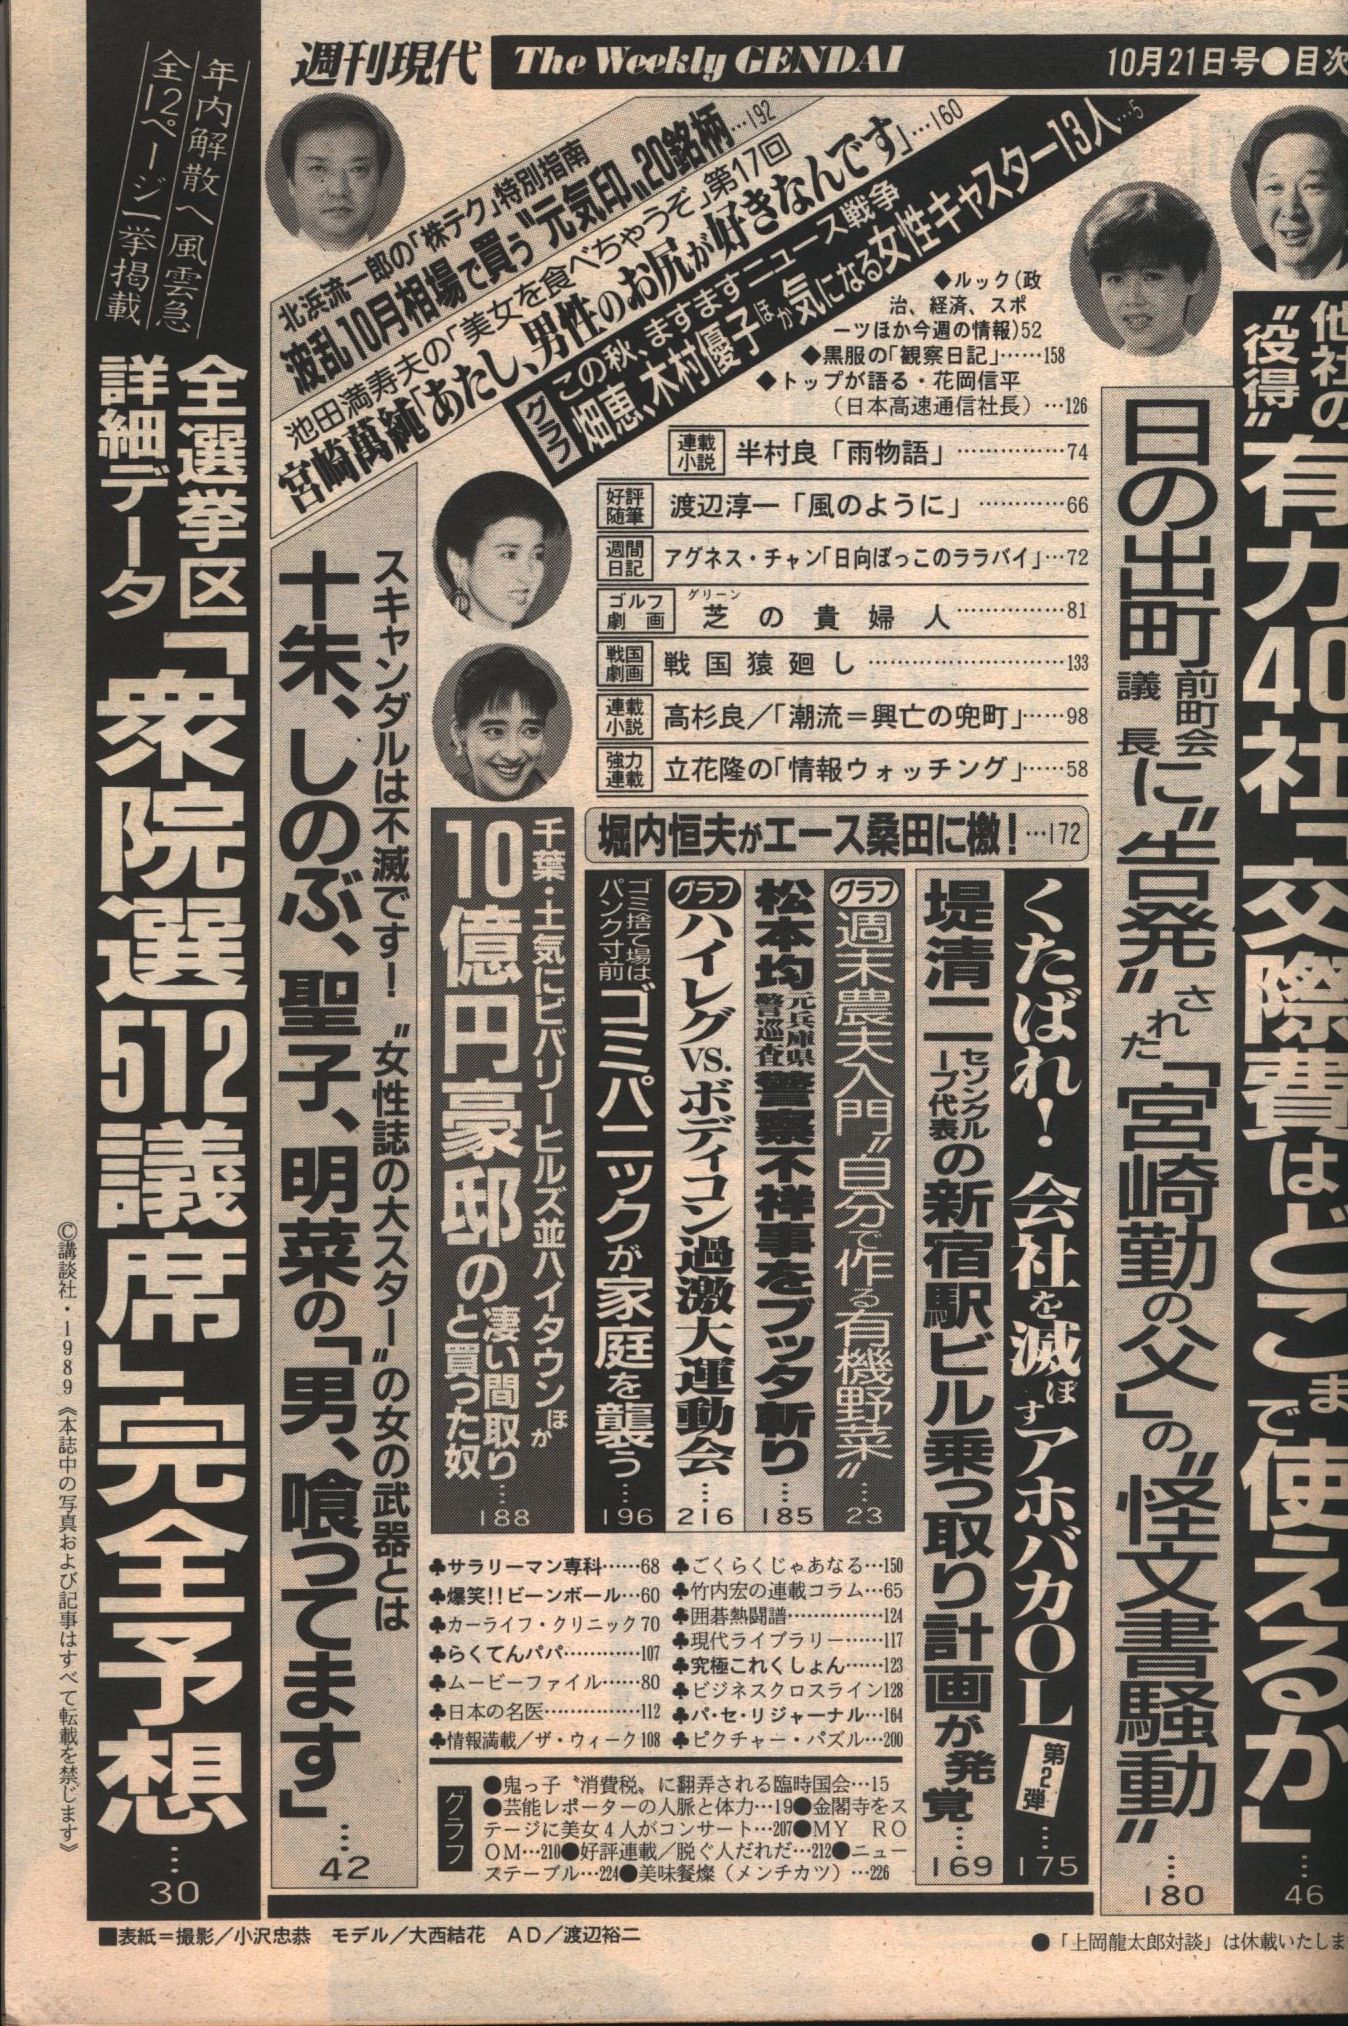 週刊現代
The Weekly GENDAI
10月21日号●目次
他社の
“役得”
有力40社「交際費はどこまで使えるか」…46
日の出町前町会議長に“告発”された「宮崎勤の父」の“怪文書騒動”…180
グラフ
この秋、ますますニュース戦争
畑恵、木村優子ほか気になる女性キャスター13人…5
池田満寿夫の「美女を食べちゃうぞ」第17回
宮崎萬純「あたし、男性のお尻が好きなんです」…160
北浜流一郎の「株テク」特別指南
波乱10月相場で買う“元気印”20銘柄…192
◆ルック(政治、経済、スポーツほか今週の情報)52
◆黒服の「観察日記」……158
◆トップが語る・花岡信平
(日本高速通信社長)…126
連載小説 半村良「雨物語」……………74
好評随筆 渡辺淳一「風のように」…………66
週間日記 アグネス・チャン「日向ぼっこのララバイ」…72
ゴルフ劇画 芝(グリーン)の貴婦人……………81
戦国劇画 戦国猿廻し………………………133
連載小説 高杉良／「潮流＝興亡の兜町」……98
強力連載 立花隆の「情報ウォッチング」……58
堀内恒夫がエース桑田に檄！…172
くたばれ！会社を滅ぼすアホバカOL第2弾…175
堤清二セゾングループ代表の新宿駅ビル乗っ取り計画が発覚…169
グラフ 週末農夫入門“自分で作る有機野菜”…23
松本均元兵庫県警巡査警察不祥事をブッタ斬り…185
グラフ ハイレグVS.ボディコン過激大運動会…216
ゴミ捨て場はパンク寸前
ゴミパニックが家庭を襲う…196
千葉・土気にビバリーヒルズ並ハイタウンほか
10億円豪邸の凄い間取りと買った奴…188
スキャンダルは不滅です！“女性誌の大スター”の女の武器とは
十朱、しのぶ、聖子、明菜の「男、喰ってます」…42
♣サラリーマン専科……68
♣爆笑!!ビーンボール…60
♣カーライフ・クリニック70
♣らくてんパパ…………107
♣ムービーファイル……80
♣日本の名医……………112
♣情報満載／ザ・ウィーク108
♣ごくらくじゃあなる…150
♣竹内宏の連載コラム…65
♣囲碁熱闘譜……………124
♣現代ライブラリー……117
♣究極これくしょん……123
♣ビジネスクロスライン128
♣パ・セ・リジャーナル…164
♣ピクチャー・パズル…200
グラフ
●鬼っ子〝消費税〟に翻弄される臨時国会…15
●芸能レポーターの人脈と体力…19●金閣寺をス
テージに美女4人がコンサート…207●MY RO
OM…210●好評連載／脱ぐ人だれだ…212●ニュー
ステーブル…224●美味餐燦（メンチカツ）…226
年内解散へ風雲急
全12ページ一挙掲載
全選挙区
詳細データ
「衆院選512議席」完全予想…30
©講談社・1989《本誌中の写真および記事はすべて転載を禁じます》
■表紙＝撮影／小沢忠恭　モデル／大西結花　AD／渡辺裕二
●「上岡龍太郎対談」は休載いたしま